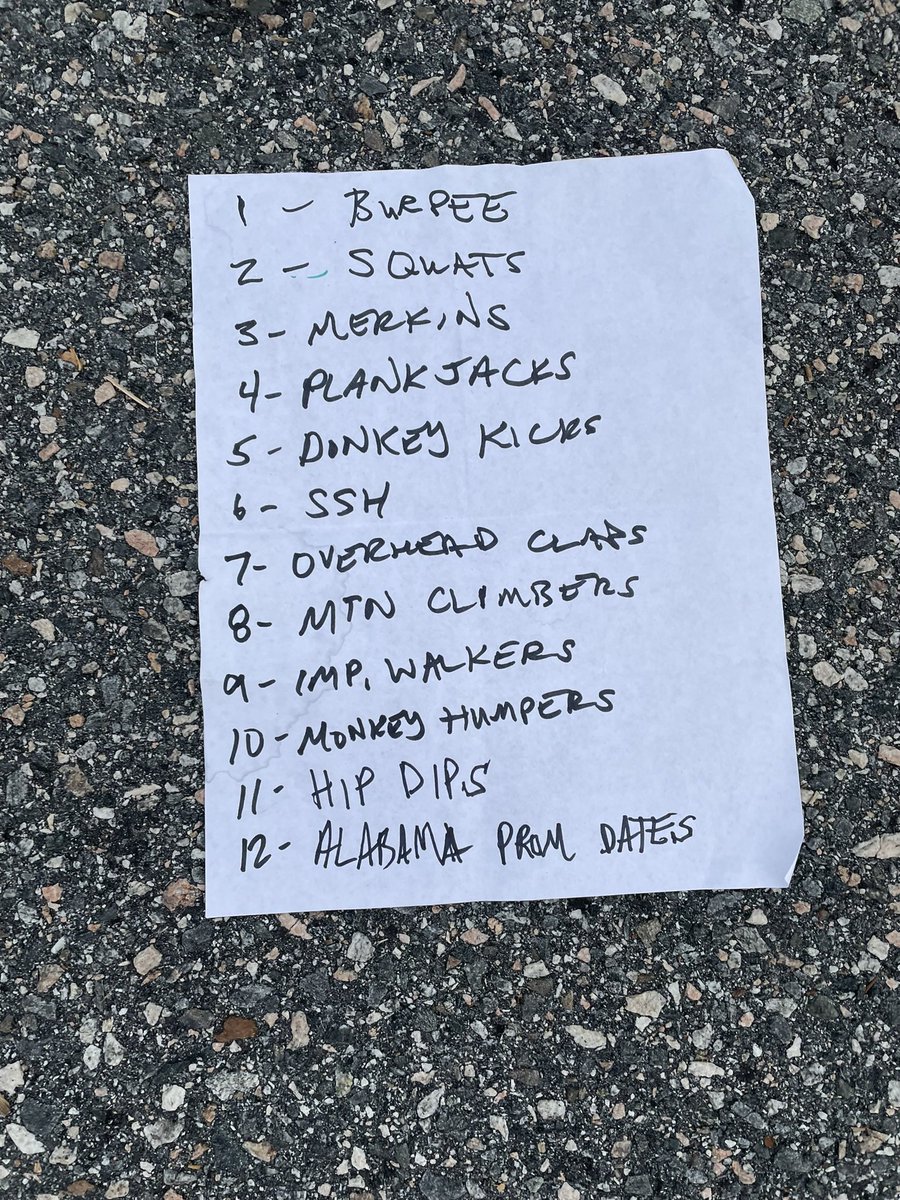 1 - BURPEE
2 - SQUATS
3 - MERKINS
4 - PLANK JACKS
5 - DONKEY KICKS
6 - SSH
7 - OVERHEAD CLAPS
8 - MTN CLIMBERS
9 - IMP. WALKERS
10 - MONKEY HUMPERS
11 - HIP DIPS
12 - ALABAMA PROM DATES